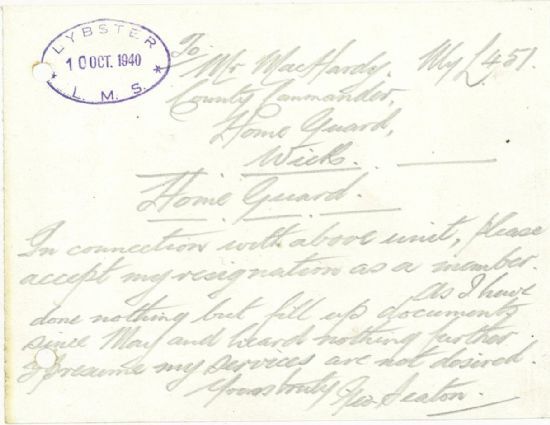 LYBSTER
10 OCT. 1940
* L. M. S. *
To
Mr MacHardy. My L 451.
County Commander,
Home Guard,
Wick.
Home Guard.
In connection with above unit, please
accept my resignation as a member.
As I have
done nothing but fill up documents
since May and heard nothing further
I presume my services are not desired
Yours truly Geo. Seaton.